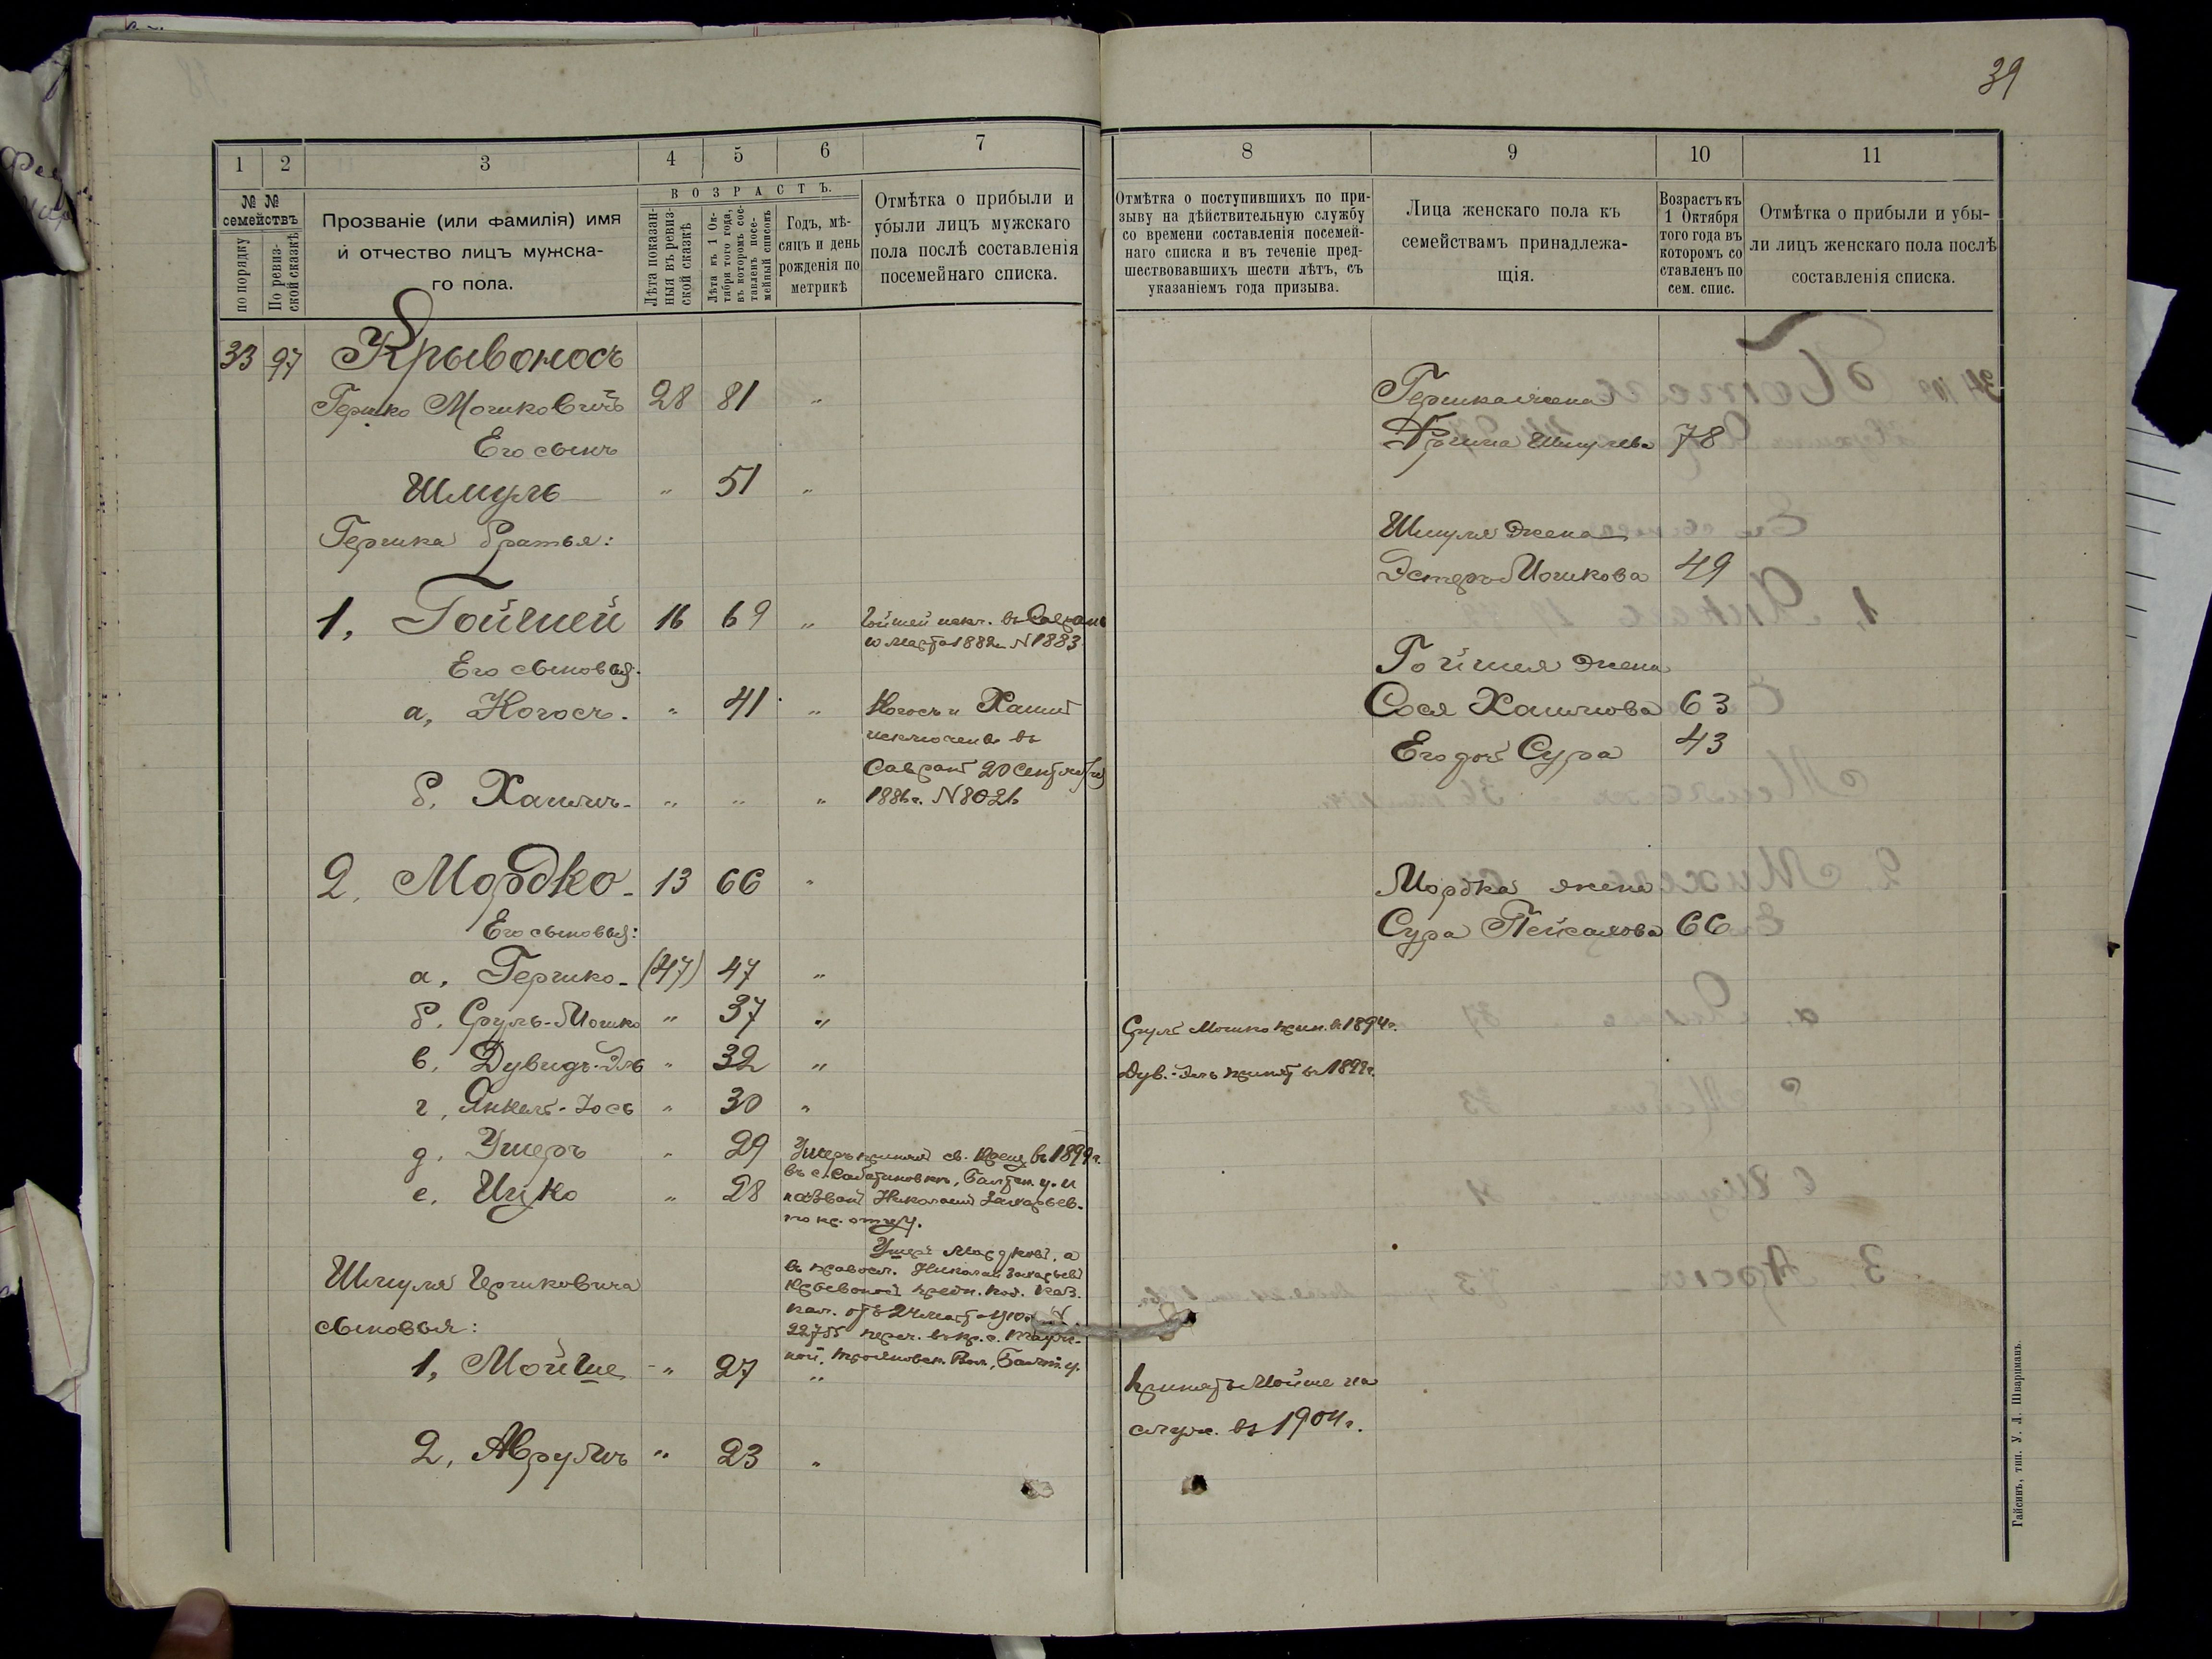 39
1
2
3
4
5
6
7
№ №
семействъ
по порядку
По ревиз-
ской сказкѣ
Прозваніе (или фамилія) имя
и отчество лицъ мужска-
го пола.
ВОЗРАСТЪ.
Лѣта показан-
ныя въ ревиз-
ской сказкѣ
Лѣта къ 1 Ок-
тября того года,
въ которомъ сос-
тавленъ посе-
мейный списокъ
Годъ, мѣ-
сяцъ и день
рожденія по
метрикѣ
Отмѣтка о прибыли и
убыли лицъ мужскаго
пола послѣ составленія
посемейнаго списка.
33 97 Крывоносъ
Гершко Мошковичъ 28 81 "
Его сынъ
Шмуль " 51 "
Гершка братья:
1, Гойшей 16 69 " Гойшей искл. въ Савранъ
10 марта 1882 г. N 1883
Его сыновья:
а, Ногосъ. " 41 " Ногосъ и Хаимъ
исключены въ
Савранъ 20 сентября
б, Хаимъ. " " " 1886 г. N 8026
2, Мордко 13 66 "
Его сыновья:
а, Гершко (47) 47 "
б, Сруль-Мошко " 37 "
в, Дувидъ-Эль " 32 "
г, Янкель-Іось " 30 "
д, Ушеръ " 29 Ушеръ принял св. крещ. въ 1899 г.
въ с. Сабатиновкѣ, Балтск. у. и
е, Ицко " 28 назван Николаемъ Захарьев.
по кр. отцу.
Ушеръ Мордков., а
въ правосл. Николай Захарьевъ
Шмуля Гершковича
Крывонос Каз.
сыновья:
пал. отъ 24 марта 1910 г. N
22755
Вол., Балт. у.
1, Мойше " 27 "
2, Аврумъ " 23 "
8
9
10
11
Отмѣтка о поступившихъ по при-
зыву на дѣйствительную службу
со времени составленія посемей-
наго списка и въ теченіе пред-
шествовавшихъ шести лѣтъ, съ
указаніемъ года призыва.
Лица женскаго пола къ
семействамъ принадлежа-
щія.
Возрастъ къ
1 Октября
того года въ
которомъ со
ставленъ по
сем. спис.
Отмѣтка о прибыли и убы-
ли лицъ женскаго пола послѣ
составленія списка.
Гершка жена
Фрима Шмулева 78
Шмуля жена
Эстеръ Мошкова 49
Гойшея жена
Сося Хаимова 63
Его дочь Сура 43
Мордка жена
Сура Пейсахова 66
Сруль Мошко прин. въ 1894 г.
Дув.-Эль принятъ въ 1899 г.
Принятъ Мойше на
служ. въ 1904 г.
Гайсинъ, тип. У. Л. Шварцманъ.